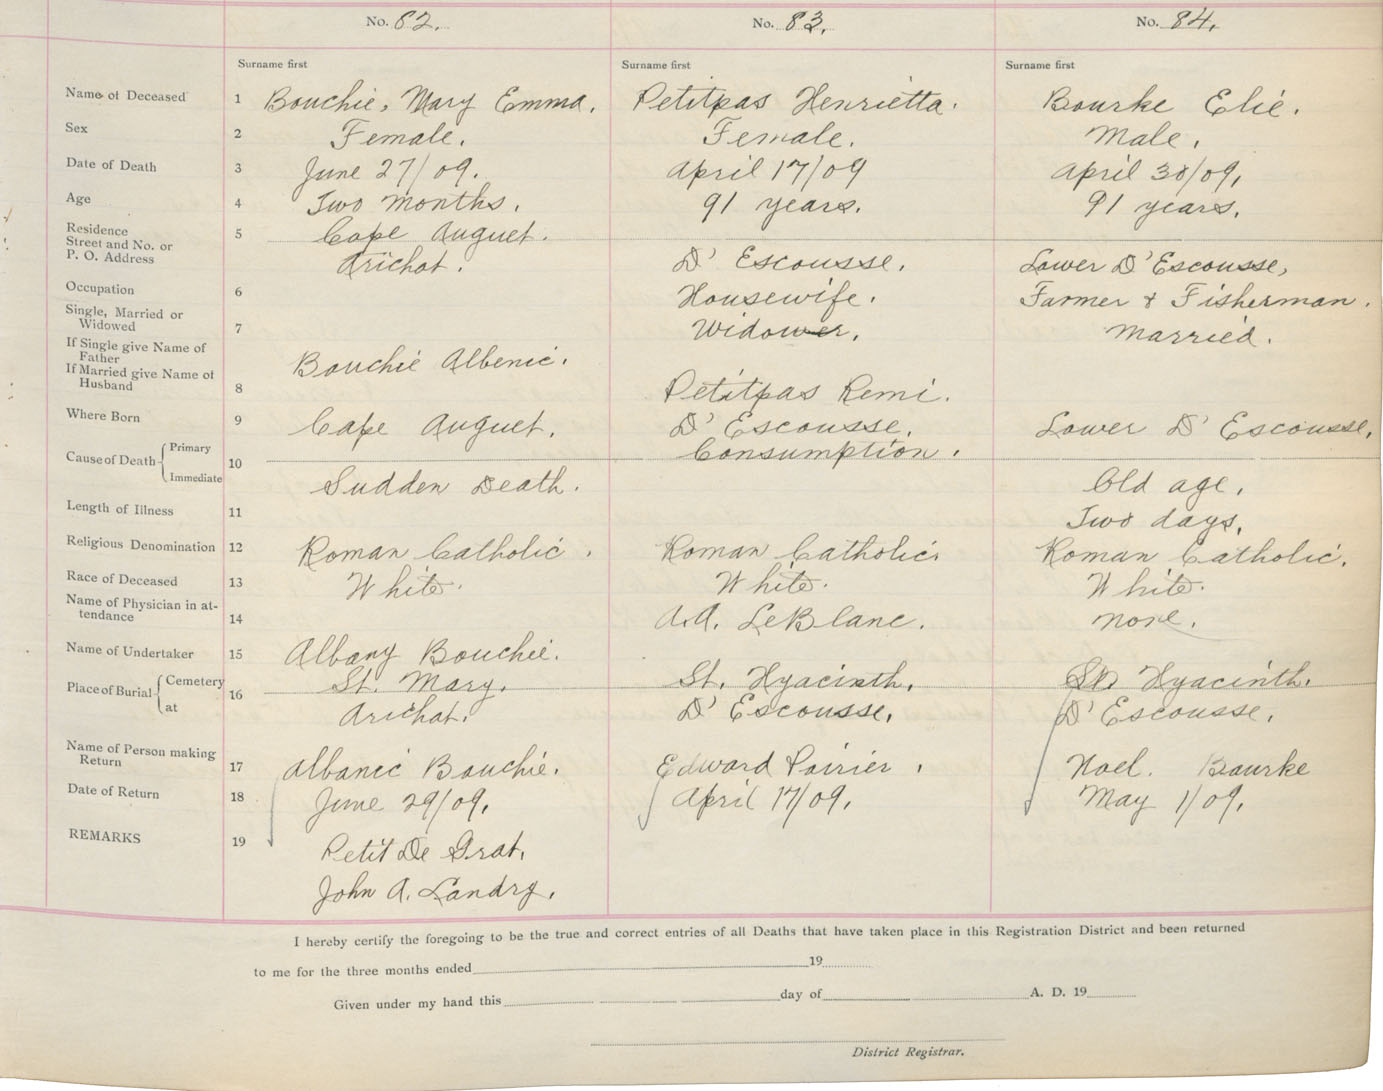 No. 82. No. 83. No. 84.
Surname first Surname first Surname first
Name of Deceased 1 Bouchie, Mary Emma. Petitpas Henrietta. Bourke Elie.
Sex 2 Female. Female. Male.
Date of Death 3 June 27/09. April 17/09 April 30/09.
Age 4 Two months. 91 years. 91 years.
Residence 5 Cape Auguet.
Street and No. or
P. O. Address Arichat. D' Escousse. Lower D'Escousse,
Occupation 6 Housewife. Farmer & Fisherman.
Single, Married or
Widowed 7 Widower. Married.
If Single give Name of
Father Bouchie Albenie.
If Married give Name of
Husband 8 Petitpas Remi.
Where Born 9 Cape Auguet. D' Escousse. Lower D' Escousse.
Cause of Death Primary Consumption.
10
Immediate Sudden Death. Old age.
Length of Illness 11 Two days.
Religious Denomination 12 Roman Catholic. Roman Catholic. Roman Catholic.
Race of Deceased 13 White. White. White.
Name of Physician in at-
tendance 14 A.A. LeBlanc. none.
Name of Undertaker 15 Albany Bouchie.
Place of Burial Cemetery 16 St. Mary. St. Hyacinth. St. Hyacinth.
at Arichat. D' Escousse. D' Escousse.
Name of Person making
Return 17 Albanie Bouchie. Edward Poirier. Noel. Bourke
Date of Return 18 June 29/09. April 17/09. May 1/09.
REMARKS 19 Petit De Grat.
John A. Landry.
I hereby certify the foregoing to be the true and correct entries of all Deaths that have taken place in this Registration District and been returned
to me for the three months ended 19
Given under my hand this day of A. D. 19
District Registrar.